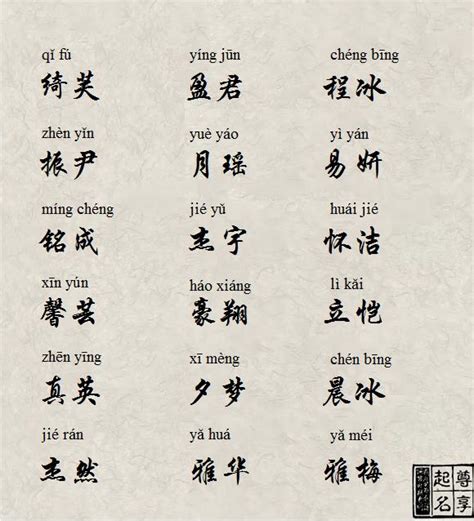 qǐ fú yíng jūn chéng bīng
绮芙 盈君 程冰
zhèn yǐn yuè yáo yì yán
振尹 月瑶 易妍
míng chéng jié yǔ huái jié
铭成 杰宇 怀洁
xīn yún háo xiáng lì kǎi
馨芸 豪翔 立恺
zhēn yīng xī mèng chén bīng
真英 夕梦 晨冰
jié rán yǎ huá yǎ méi
杰然 雅华 雅梅
尊享
起名